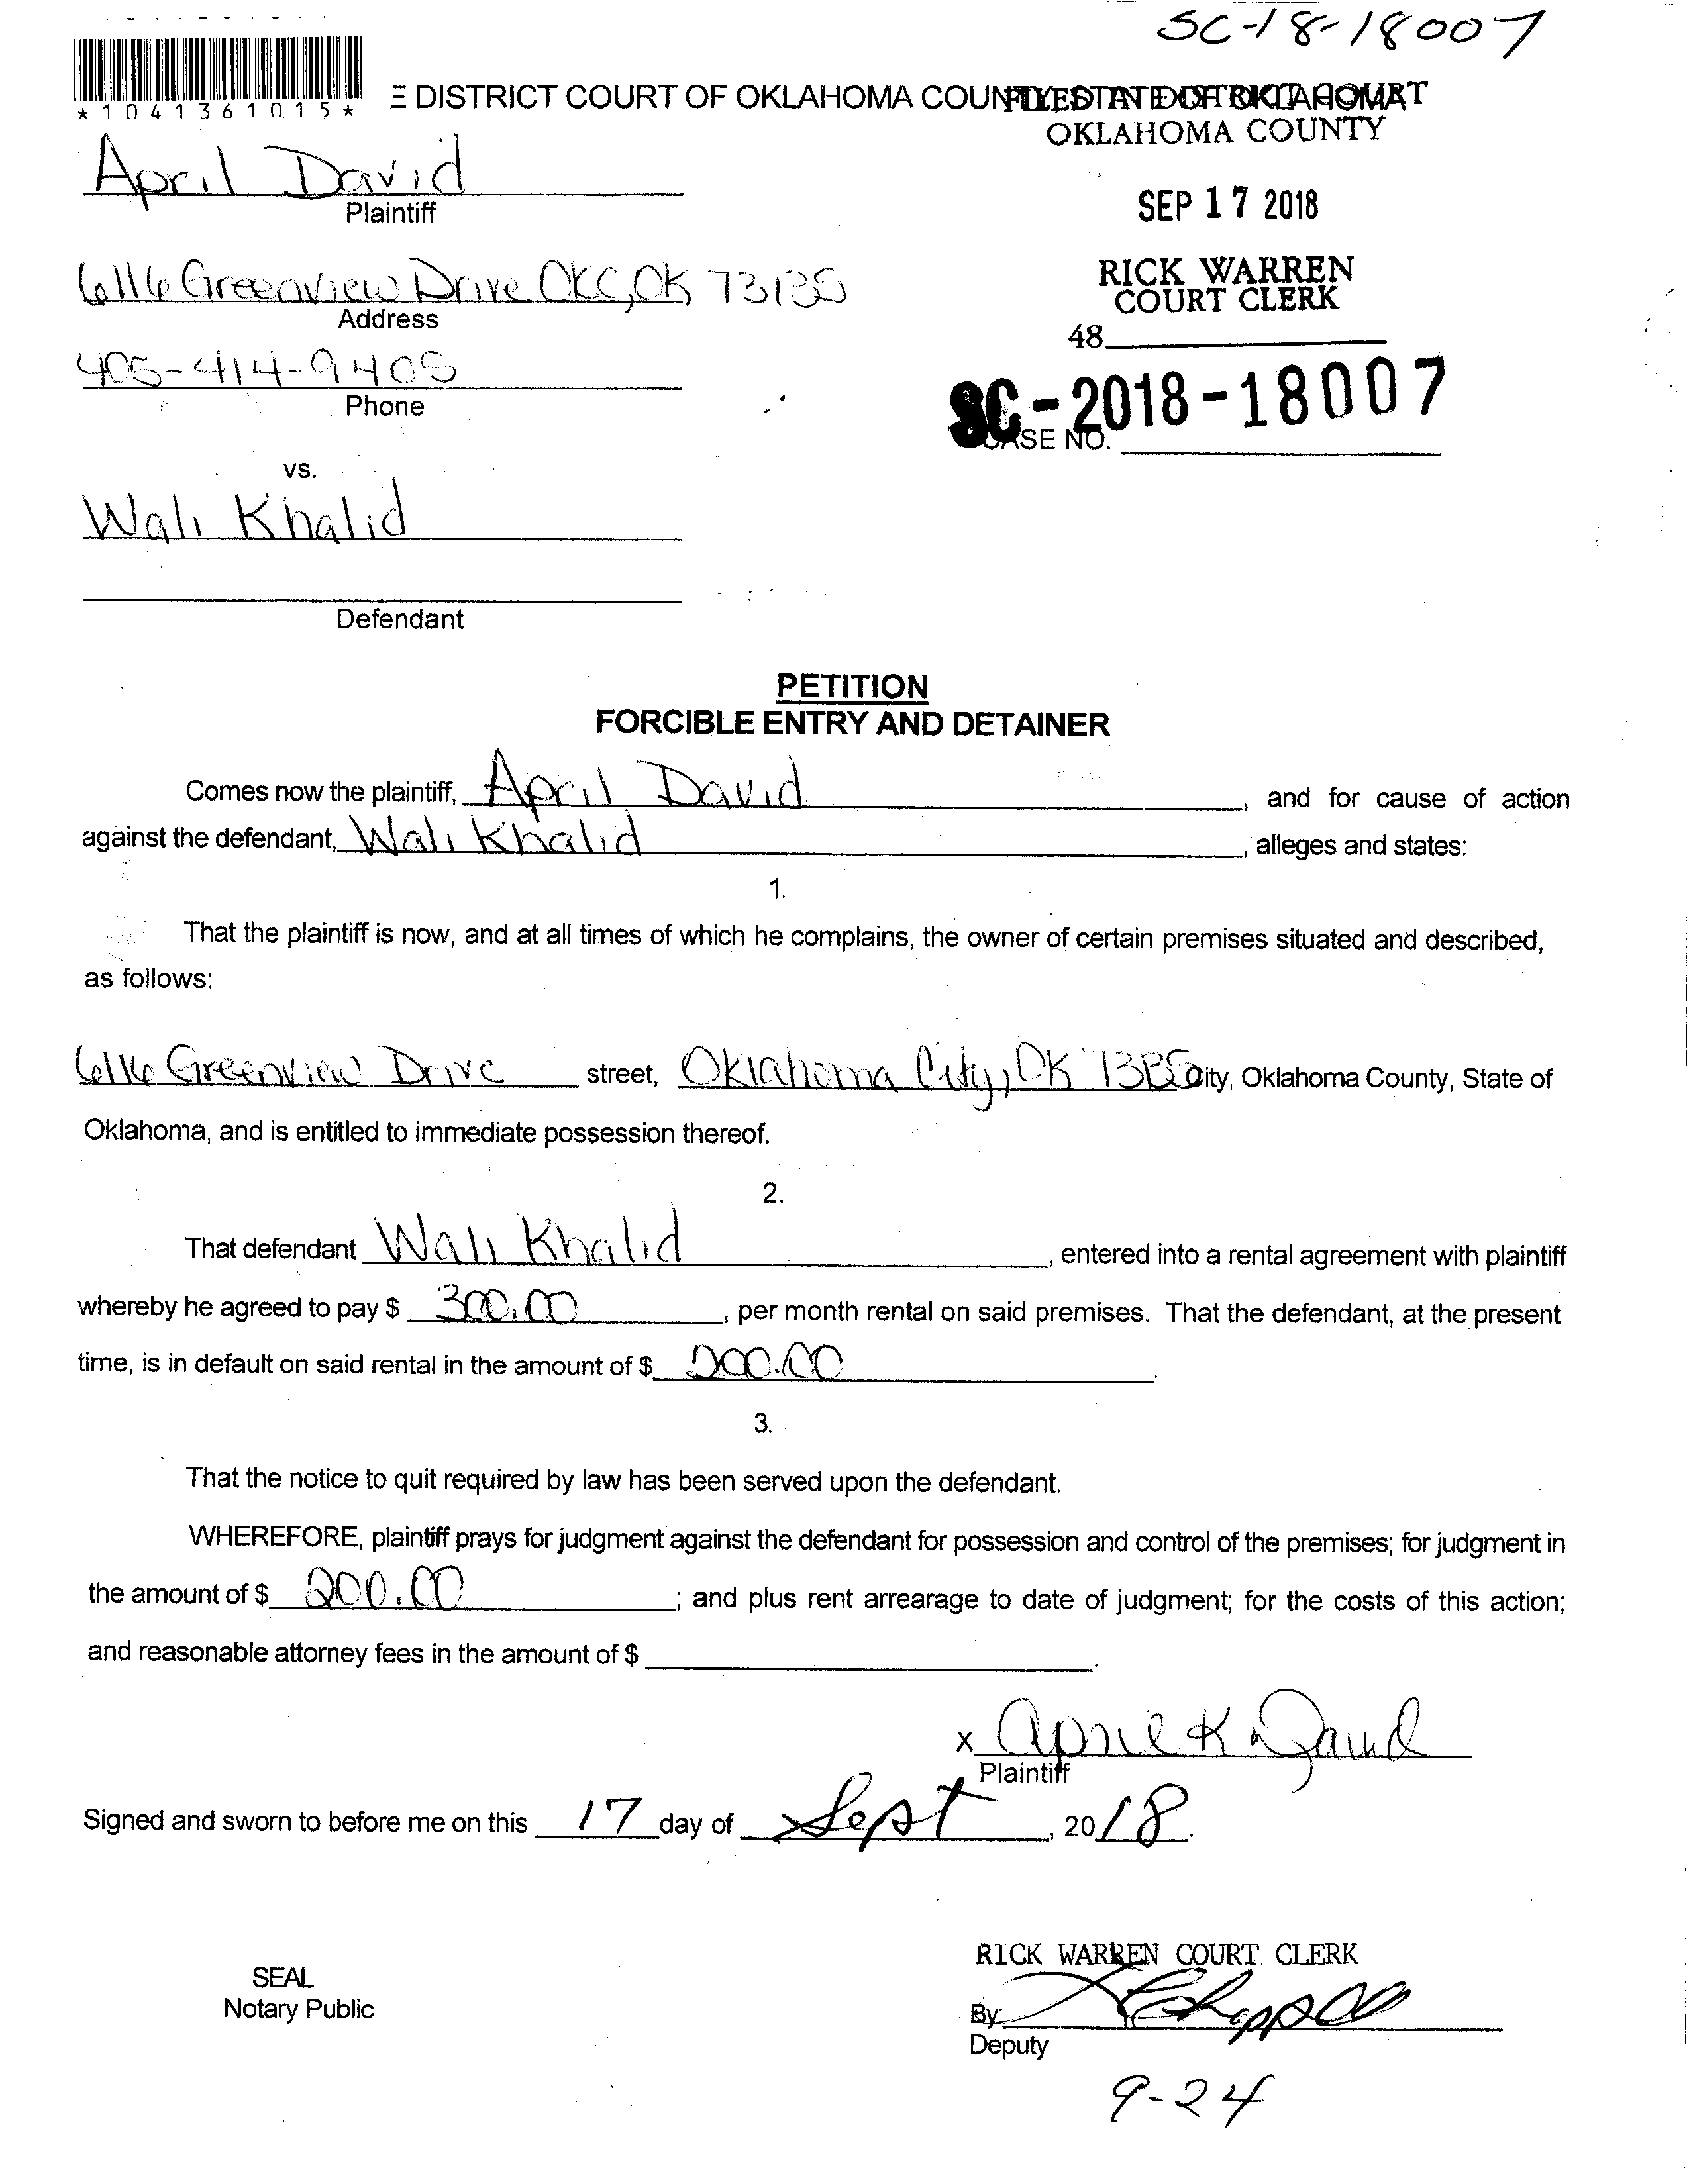 SC-18-18007
*1041361015*
E DISTRICT COURT OF OKLAHOMA COUNTY, STATE OF OKLAHOMA
FILED IN DISTRICT COURT
OKLAHOMA COUNTY
April David
Plaintiff
SEP 17 2018
6116 Greenview Drive OKC, OK 73135
Address
RICK WARREN
COURT CLERK
48
405-414-9405
Phone
SC-2018-18007
CASE NO.
vs.
Wali Khalid
Defendant
PETITION
FORCIBLE ENTRY AND DETAINER
Comes now the plaintiff, April David, and for cause of action
against the defendant, Wali Khalid, alleges and states:
1.
That the plaintiff is now, and at all times of which he complains, the owner of certain premises situated and described,
as follows:
6116 Greenview Drive street, Oklahoma City, OK 73135 City, Oklahoma County, State of
Oklahoma, and is entitled to immediate possession thereof.
2.
That defendant Wali Khalid, entered into a rental agreement with plaintiff
whereby he agreed to pay $ 300.00, per month rental on said premises. That the defendant, at the present
time, is in default on said rental in the amount of $ 200.00.
3.
That the notice to quit required by law has been served upon the defendant.
WHEREFORE, plaintiff prays for judgment against the defendant for possession and control of the premises; for judgment in
the amount of $ 200.00; and plus rent arrearage to date of judgment; for the costs of this action;
and reasonable attorney fees in the amount of $ .
x April K David
Plaintiff
Signed and sworn to before me on this 17 day of Sept, 2018.
RICK WARREN COURT CLERK
SEAL
Notary Public
By:
Deputy
9-24